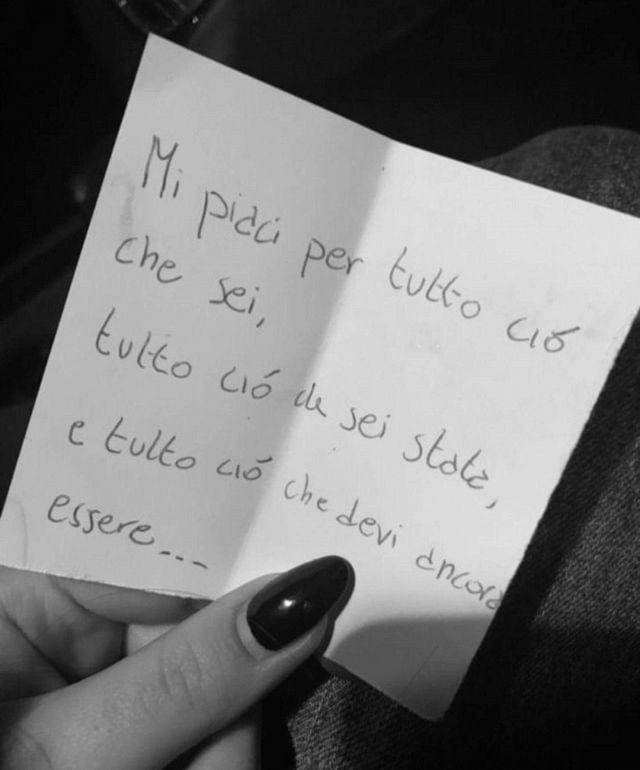 Mi piaci per tutto ció
che sei,
tutto ció che sei stata,
e tutto ció che devi ancora
essere...